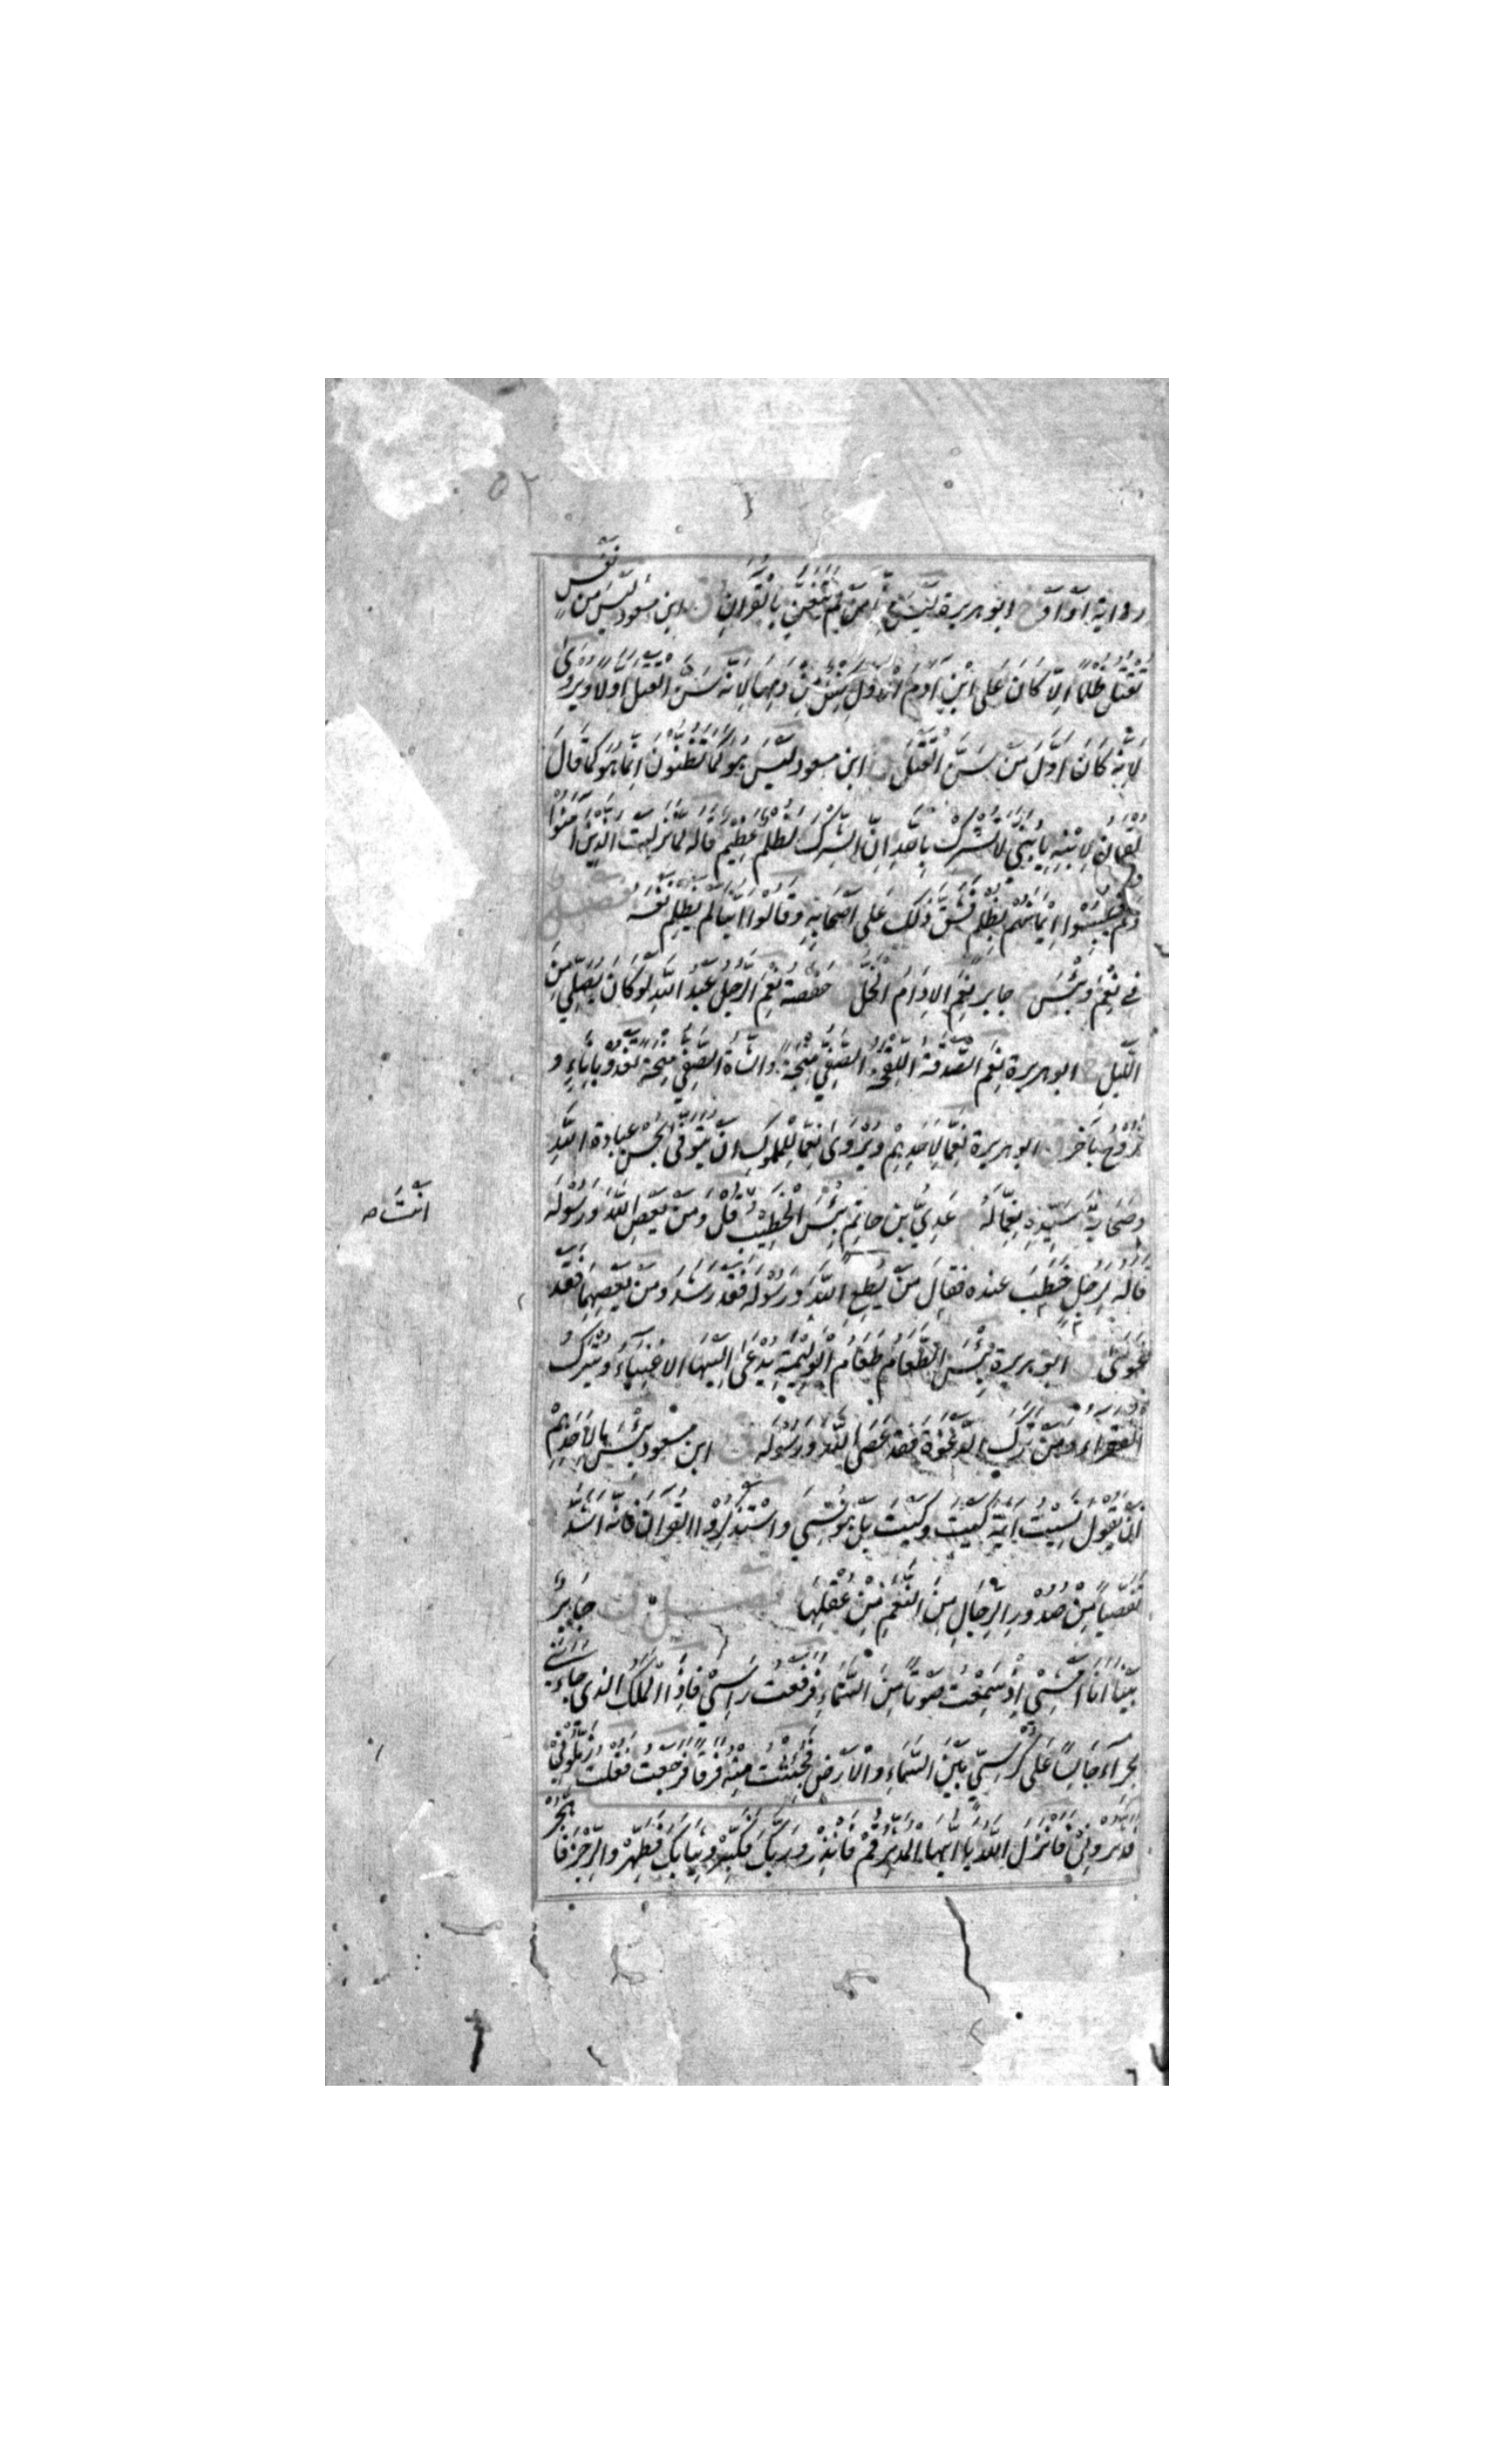 ٥٢
رواية او او خ ابو هريرة لَيْسَ مِنَّا مَنْ لَمْ يَتَغَنَّ بِالْقُرْآنِ ق ابن مسعود لَيْسَ مِنْ نَفْسٍ
تُقْتَلُ ظُلْمًا اِلَّا كَانَ عَلَى ابْنِ آدَمَ الْاَوَّلِ كِفْلٌ مِنْ دَمِهَا لِاَنَّهُ سَنَّ الْقَتْلَ اَوَّلًا وَيُرْوَى
لِاَنَّهُ كَانَ اَوَّلَ مَنْ سَنَّ الْقَتْلَ ق ابن مسعود لَيْسَ هُوَ كَمَا تَظُنُّونَ اِنَّمَا هُوَ كَمَا قَالَ
لُقْمَانُ لِابْنِهِ يَا بُنَيَّ لَا تُشْرِكْ بِاللّٰهِ اِنَّ الشِّرْكَ لَظُلْمٌ عَظِيمٌ قاله لَمَّا نَزَلَتْ الَّذِينَ آمَنُوا
وَلَمْ يَلْبِسُوا اِيمَانَهُمْ بِظُلْمٍ فَشَقَّ ذٰلِكَ عَلَى اَصْحَابِهِ وَقَالُوا اَيُّنَا لَمْ يَظْلِمْ نَفْسَهُ فصل
فِي نِعْمَ وَبِئْسَ جابر نِعْمَ الْاِدَامُ الْخَلُّ حفصة نِعْمَ الرَّجُلُ عَبْدُ اللّٰهِ لَوْ كَانَ يُصَلِّي مِنَ
اللَّيْلِ خ ابو هريرة نِعْمَ الصَّدَقَةُ اللِّقْحَةُ الصَّفِيُّ مِنْحَةً وَالشَّاةُ الصَّفِيُّ مِنْحَةً تَغْدُو بِاِنَاءٍ وَ
تَرُوحُ بِآخَرَ ابو هريرة نِعِمَّا لِاَحَدِهِمْ وَيُرْوَى نِعِمَّا لِلْمَمْلُوكِ اَنْ يُتَوَفَّى يُحْسِنُ عِبَادَةَ اللّٰهِ
وَصَحَابَةَ سَيِّدِهِ نِعِمَّا لَهُ عَدِيُّ بن حاتم بِئْسَ الْخَطِيبُ قُلْ وَمَنْ يَعْصِ اللّٰهَ وَرَسُولَهُ
قاله لِرَجُلٍ خَطَبَ عنده فقال مَنْ يُطِعِ اللّٰهَ وَرَسُولَهُ فَقَدْ رَشَدَ وَمَنْ يَعْصِهِمَا فَقَدْ
غَوَى ابو هريرة بِئْسَ الطَّعَامُ طَعَامُ الْوَلِيمَةِ يُدْعَى اِلَيْهَا الْاَغْنِيَاءُ وَيُتْرَكُ
الْفُقَرَاءُ وَمَنْ تَرَكَ الدَّعْوَةَ فَقَدْ عَصَى اللّٰهَ وَرَسُولَهُ ق ابن مسعود بِئْسَ مَا لِاَحَدِهِمْ
اَنْ يَقُولَ نَسِيتُ آيَةَ كَيْتَ وَكَيْتَ بَلْ هُوَ نُسِّيَ وَاسْتَذْكِرُوا الْقُرْآنَ فَاِنَّهُ اَشَدُّ
تَفَصِّيًا مِنْ صُدُورِ الرِّجَالِ مِنَ النَّعَمِ مِنْ عُقُلِهَا فصل ق جَابِرٌ
بَيْنَا اَنَا اَمْشِي اِذْ سَمِعْتُ صَوْتًا مِنَ السَّمَاءِ فَرَفَعْتُ رَأْسِي فَاِذَا الْمَلَكُ الَّذِي جَاءَنِي
بِحِرَاءَ جَالِسًا عَلَى كُرْسِيٍّ بَيْنَ السَّمَاءِ وَالْاَرْضِ فَجُئِثْتُ مِنْهُ فَرَقًا فَرَجَعْتُ فَقُلْتُ زَمِّلُونِي
فَدَثَّرُونِي فَاَنْزَلَ اللّٰهُ يَا اَيُّهَا الْمُدَّثِّرُ قُمْ فَاَنْذِرْ وَرَبَّكَ فَكَبِّرْ وَثِيَابَكَ فَطَهِّرْ وَالرُّجْزَ فَاهْجُرْ